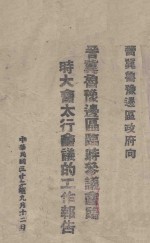 晋冀魯豫邊區政府向
晋冀魯豫邊區臨時參議會
時大會太行會議的工作報告
中華民國三十二年九月十二日